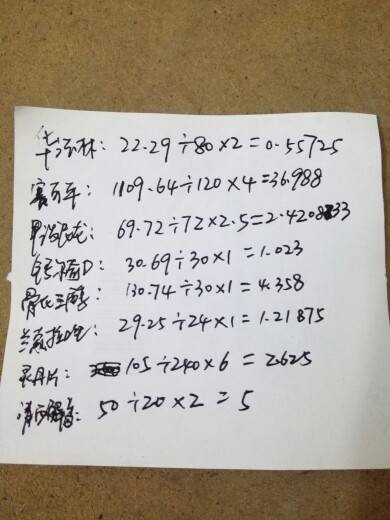 华法林: 22.29÷80×2=0.55725
赛可平: 1109.64÷120×4=36.988
甲泼尼龙: 69.72÷72×2.5=2.420833
钙尔奇D: 30.69÷30×1=1.023
骨化三醇: 130.74÷30×1=4.358
兰索拉唑: 29.25÷24×1=1.21875
105÷240×6=2.625
50÷20×2=5